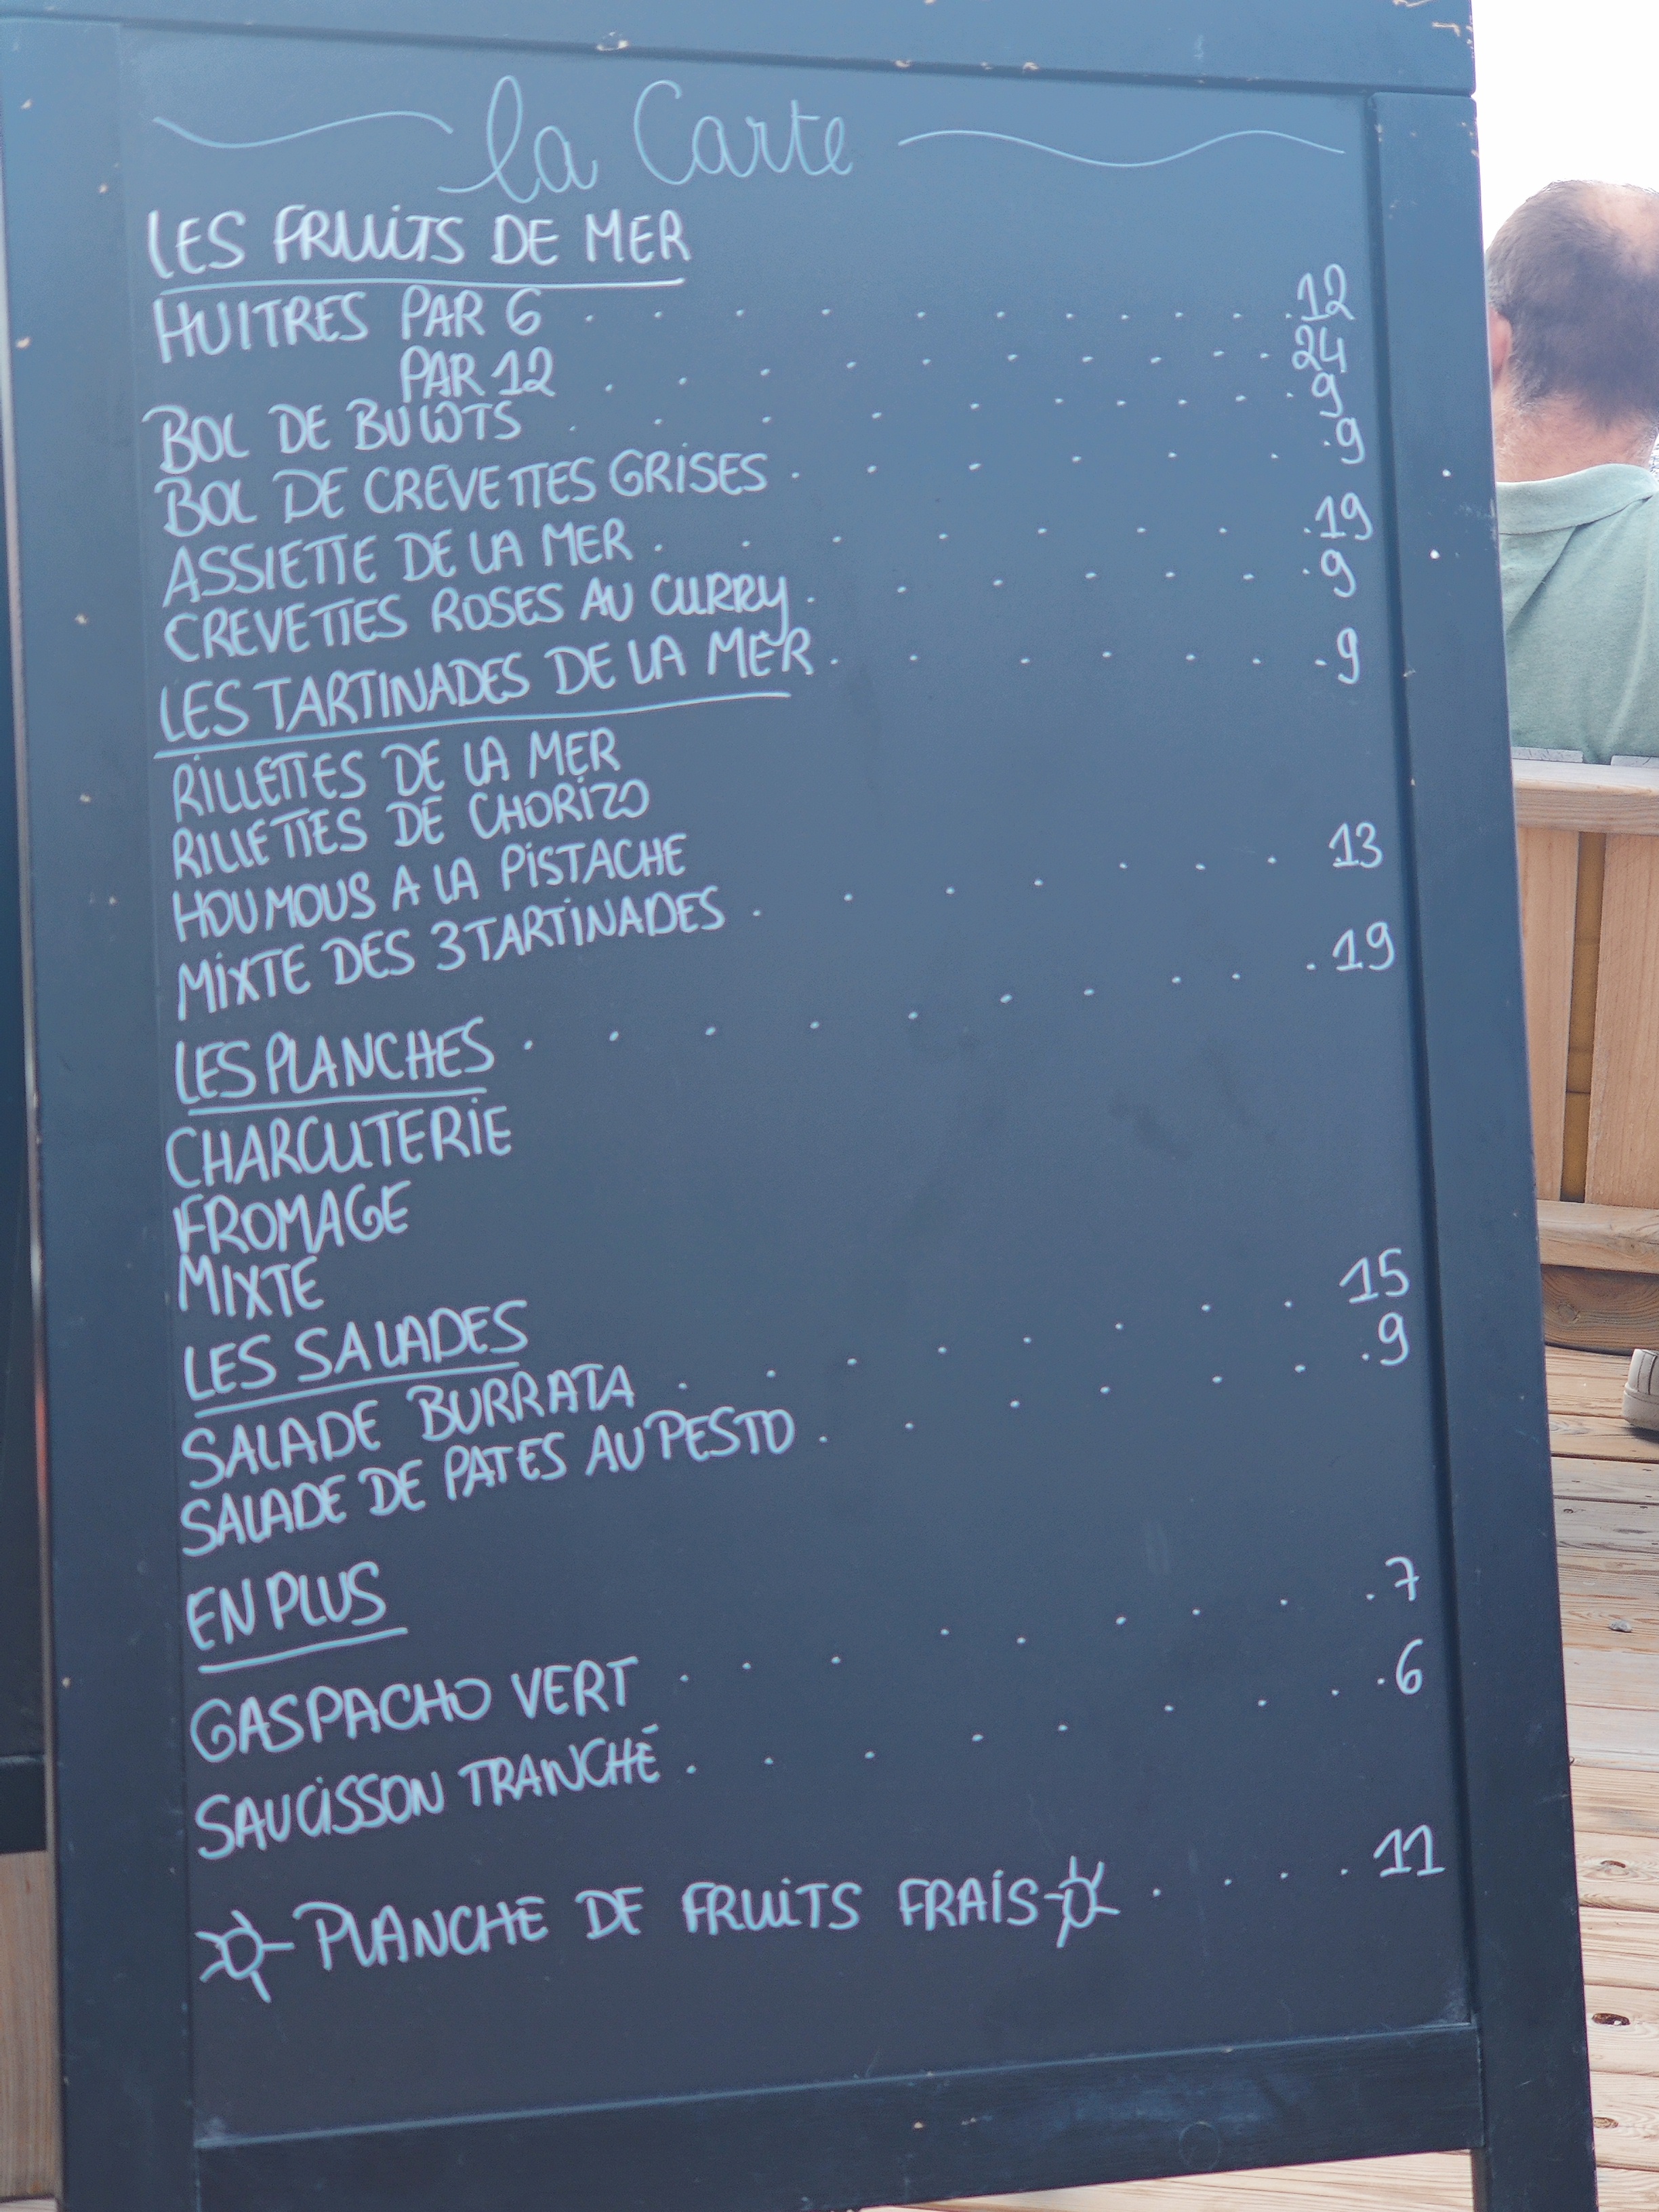 la Carte
LES FRUITS DE MER
HUITRES PAR 6 . . . . . . . . . . 12
PAR 12 . . . . . . . . . 24
BOL DE BULOTS . . . . . . . . . 9
BOL DE CREVETTES GRISES . . . . . . . 9
ASSIETTE DE LA MER . . . . . . . . 19
CREVETTES ROSES AU CURRY . . . . . . . 9
LES TARTINADES DE LA MER . . . . . . . 9
RILLETTES DE LA MER
RILLETTES DE CHORIZO
HOUMOUS A LA PISTACHE
MIXTE DES 3 TARTINADES . . . . . . . 13
LES PLANCHES . . . . . . . . . . 19
CHARCUTERIE
FROMAGE
MIXTE
LES SALADES
SALADE BURRATA . . . . . . . 15
SALADE DE PATES AU PESTO . . . . . . . 9
EN PLUS
GASPACHO VERT . . . . . . . . . 7
SAUCISSON TRANCHÉ . . . . . . . . . 6
PLANCHE DE FRUITS FRAIS . . . . 11